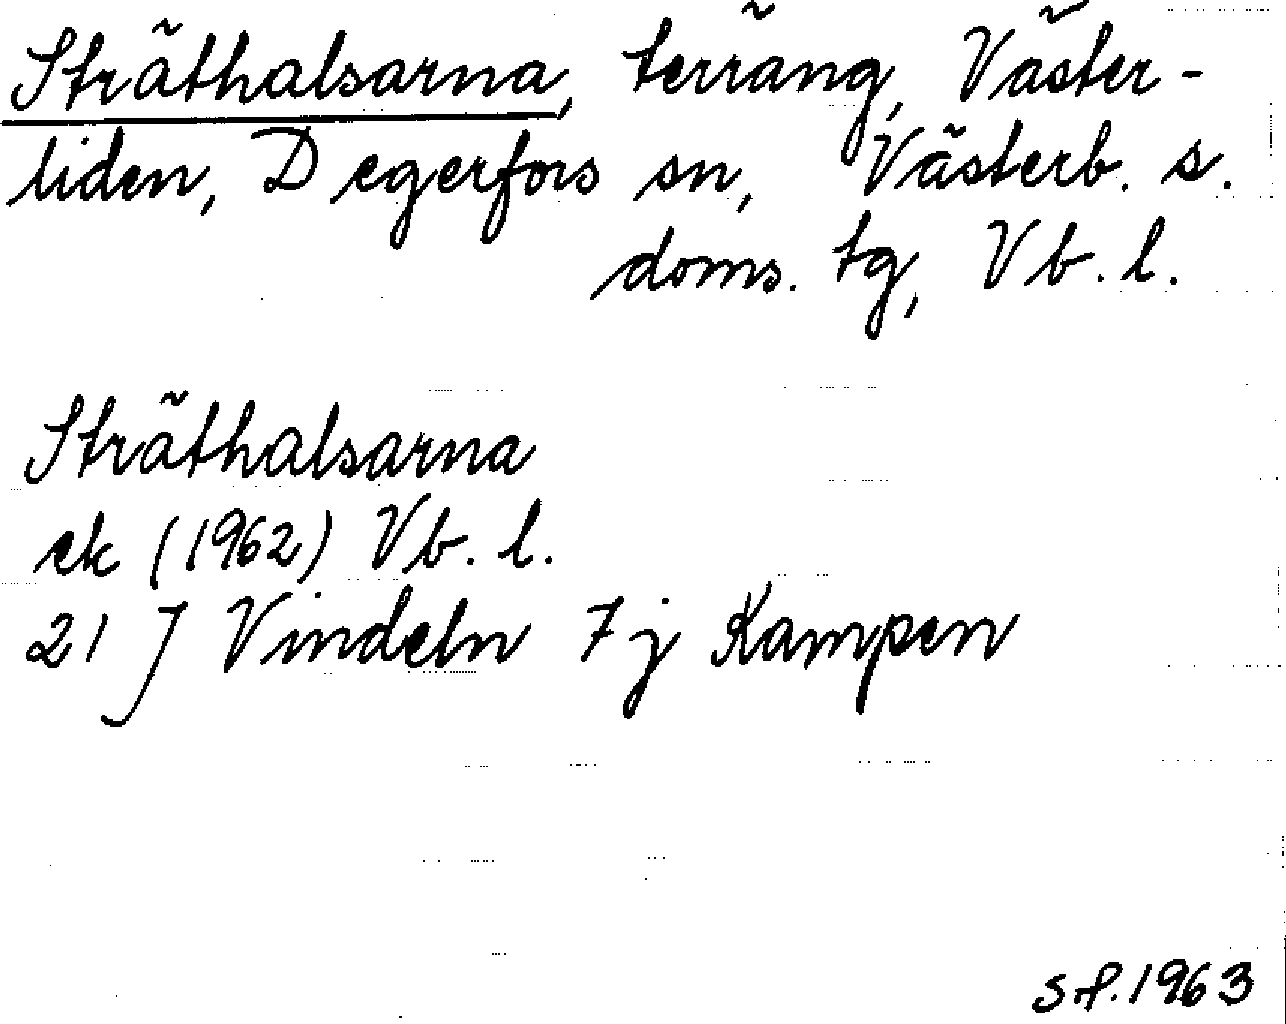 Sträthalsarna, terräng, Väster-
liden, Degerfors sn, Västerb. s.
doms. tg, Vb. l.
Sträthalsarna
ek (1962) Vb. l.
21 J Vindeln 7j Kampen
1963